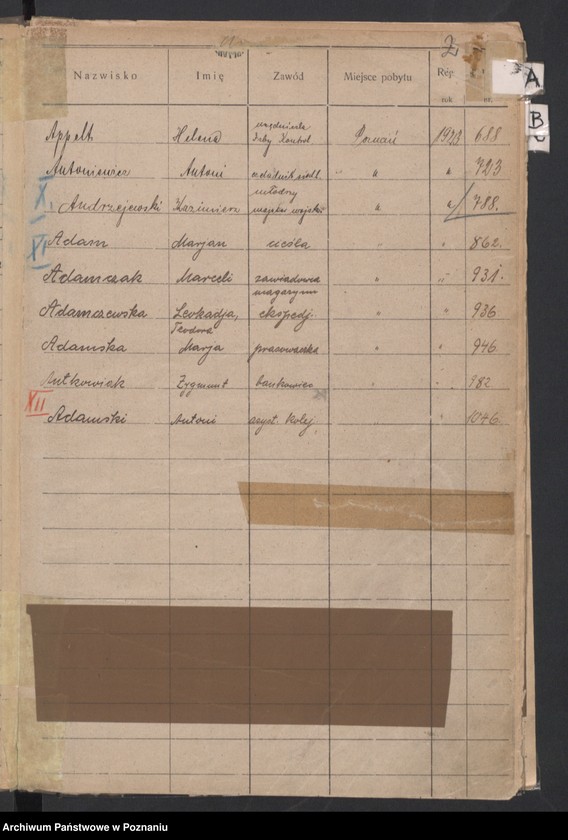 2
Nazwisko Imię Zawód Miejsce pobytu Rep.
rok nr.
A
B
Appelt Helena urzędniczka Izby Kontrol. Poznań 1923 688
Antoniewicz Antoni czeladnik siodl. " " " 723
X Andrzejewski Kazimierz wojskow. " " 788.
XI Adam Marjan " " 862.
Adamczak Marceli zawiadowca magazynu " " 931.
Adamczewska Leokadja, Teodora ekspedj. " " 936
Adamska Marja pracowaczka " " 946
Antkowiak Zygmunt bankowiec " " 982
XII Adamski Antoni asyst. kolej. " " 1046
Archiwum Państwowe w Poznaniu